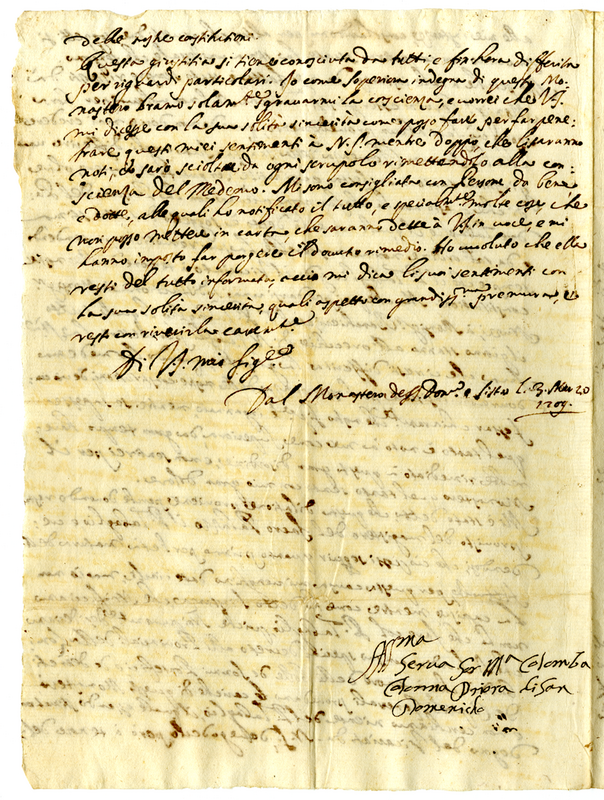 delle nostre costitutioni.
Questa giustitia si tiene conosciuta da tutti e fin hora differita
per riguardi particolari. Io come Superiora indegna di questo Mo-
nastero bramo solam.te sgravarmi la coscienza, e vorrei che V.S.
mi dicesse con la sua solita sincerità come posso fare per far pene-
trare questi miei sentimenti à N.S. mentre doppo, che li saranno
noti, io sarò sciolta da ogni scrupolo rimettendolo alla con-
scienza del Medemo. Mi sono consigliata con Persone da bene
e dotte, alle quali ho notificato il tutto, e specialm.te molte cose, che
non posso mettere in carta, che saranno dette à V.S. in voce, e mi
hanno imposto far porgere il dovuto rimedio. Ho voluto che ella
resti del tutto informata, acciò mi dica li suoi sentimenti con
la sua solita sincerità, quali aspetto con grandiss.ma premura, e
resto con riverirla caram.te
Di V.S. mio Sig.re
Dal Monastero de SS. Dom.o e Sisto li 3.
1709.
Aff.ma
Serva Sor M.a Colomba
Colonna Priora di San
Domenicho